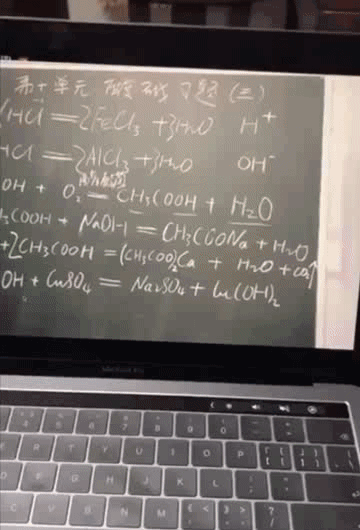 第十单元 酸碱习题 (三)
HCl = 2FeCl₃ + 3H₂O H⁺
HCl = 2AlCl₃ + 3H₂O OH⁻
OH + O₂ = CH₃COOH + H₂O
₃COOH + NaOH = CH₃COONa + H₂O
+ 2CH₃COOH = (CH₃COO)₂Ca + H₂O + CO₂↑
OH + CuSO₄ = Na₂SO₄ + Cu(OH)₂
MacBook Pro
R T Y U I O P
D F G H J K L
C V B N M